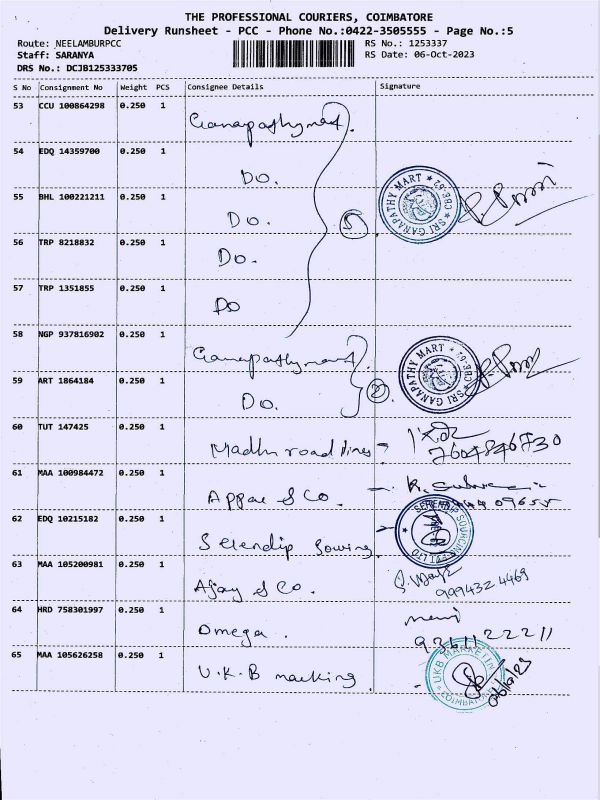 THE PROFESSIONAL COURIERS, COIMBATORE
Delivery Runsheet - PCC - Phone No.:0422-3505555 - Page No.:5
Route: NEELAMBURPCC RS No.: 1253337
Staff: SARANYA RS Date: 06-Oct-2023
DRS No.: DCJB125333705
S No Consignment No Weight PCS Consignee Details Signature
53 CCU 100864298 0.250 1 Ganapathymart.
54 EDQ 14359700 0.250 1 Do.
55 BHL 100221211 0.250 1 Do. 5 SRI GANAPATHY MART ★ CBE-62 ★
56 TRP 8218832 0.250 1 Do.
57 TRP 1351855 0.250 1 Do
58 NGP 937816902 0.250 1 Ganapathymart SRI GANAPATHY MART ★ CBE-62 ★
59 ART 1864184 0.250 1 Do. 2
60 TUT 147425 0.250 1 Madhu road lines 7604846730
61 MAA 100984472 0.250 1 Appae & Co.
62 EDQ 10215182 0.250 1 Serendip Sowing SERENDIP SOURCING PVT LTD
63 MAA 105200981 0.250 1 Ajay & Co. 9994324469
64 HRD 758301997 0.250 1 Omega.
65 MAA 105626258 0.250 1 U.K.B marking UKB MARKETING COIMBATORE